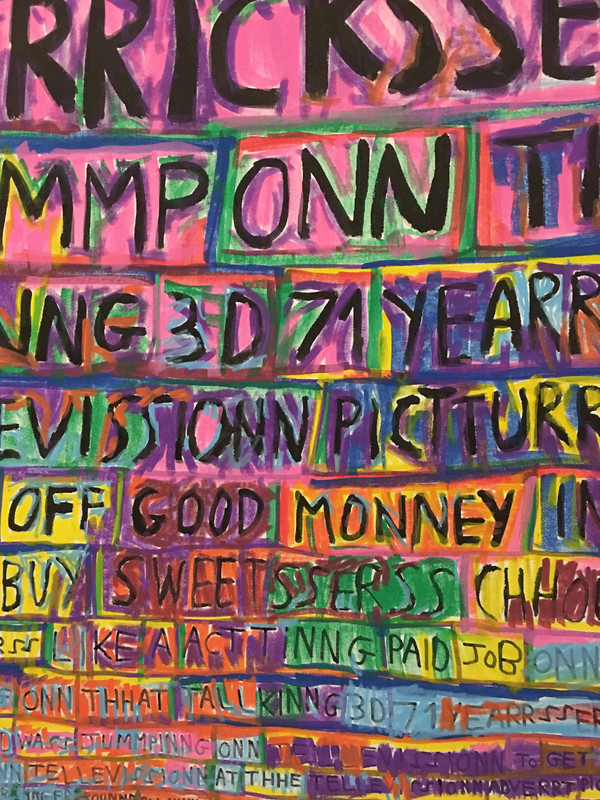 RRICKSSE
MMP ONN TH
NNG 3D 71 YEARR
EVISSIONN PICTTURR
OFF GOOD MONNEY IN
BUY SWEETSSERSS CHHO
RSS LIKE A ACTTINNG PAID JOB ONN
ONN THHAT TALLKINNG 3D 71 YEARRSSER
D WASS JUMMPINNG ONN TELLEVISSIONN TO GET
NN TELLEVISSIONN AT THHE TELLEVISSIONN ADVERRT